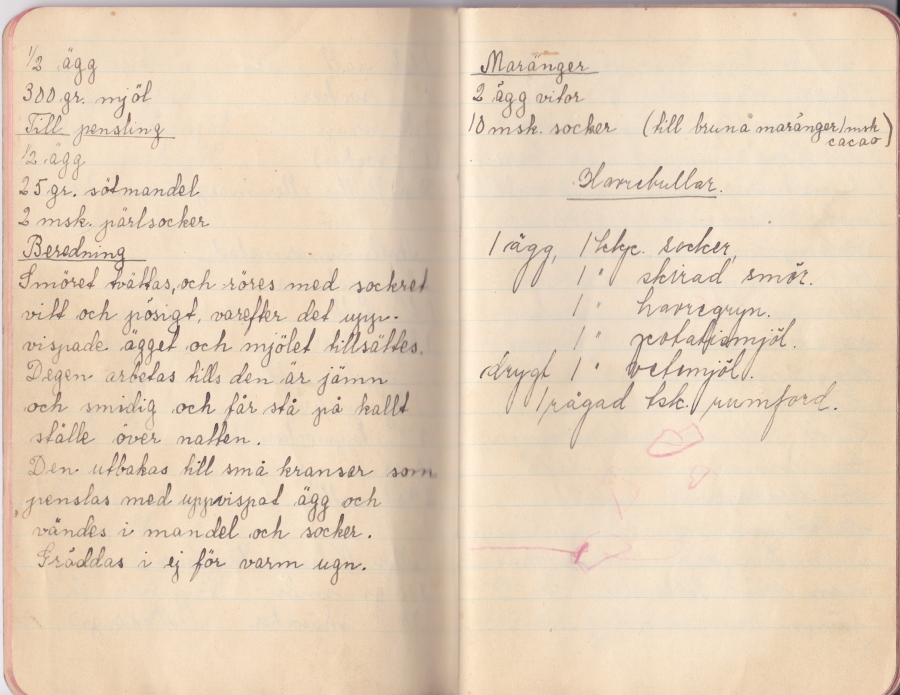 1/2 ägg
300 gr. mjöl
Till pensling
1/2 ägg
25 gr. sötmandel
2 msk. pärlsocker
Beredning
Smöret tvättas, och röres med sockret
vitt och pösigt, varefter det upp-
vispade ägget och mjölet tillsättes.
Degen arbetas tills den är jämn
och smidig och får stå på kallt
ställe över natten.
Den utbakas till små kransar som
penslas med uppvispat ägg och
vändes i mandel och socker.
Gräddas i ej för varm ugn.
Maränger
2 ägg vitor
10 msk. socker (till bruna maränger 1 msk
cacao)
Havrebullar.
1 ägg, 1 socker,
1 " skirad smör.
1 " havregryn.
1 " potatismjöl.
drygt 1 " vetemjöl.
1 rågad tsk. rumford.